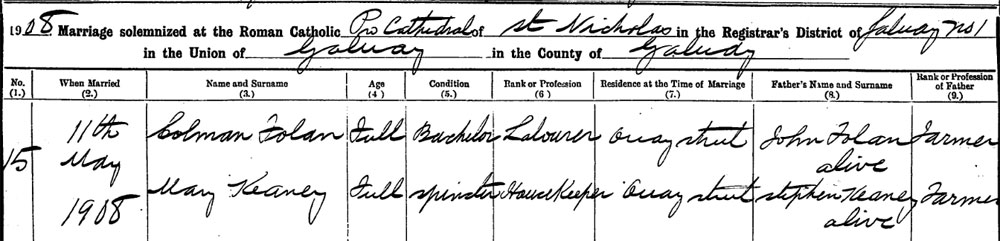 1908 Marriage solemnized at the Roman Catholic Pro Cathedral of St Nicholas in the Registrar's District of Galway No 1
in the Union of Galway in the County of Galway
No. When Married Name and Surname Age Condition Rank or Profession Residence at the Time of Marriage Father's Name and Surname Rank or Profession of Father
(1.) (2.) (3.) (4) (5.) (6) (7.) (8.) (9.)
15 11th May 1908
Colman Folan Full Bachelor Labourer Quay street John Folan alive Farmer
Mary Keaney Full spinster HouseKeeper Quay street stephen Keaney alive Farmer